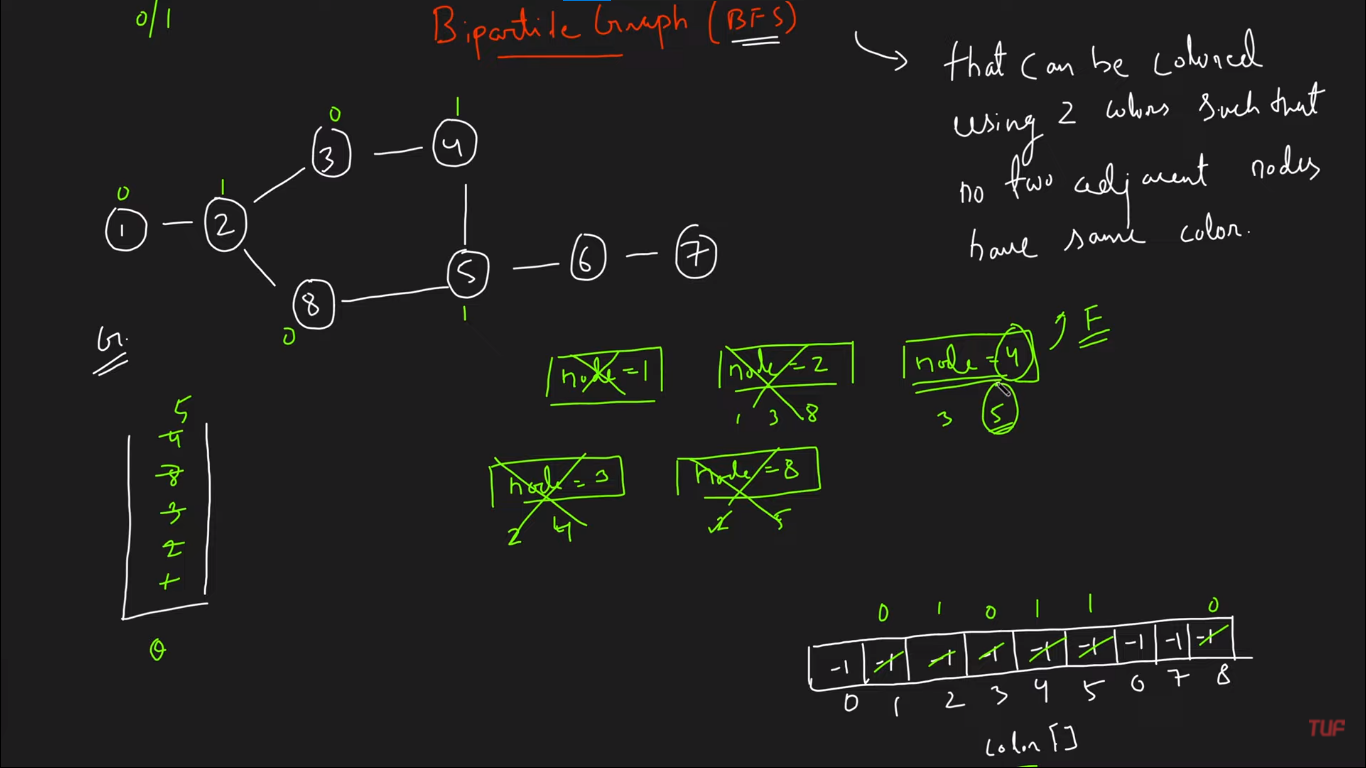 0/1
Bipartite Graph (BFS)
that can be colored
using 2 colors such that
no two adjacent nodes
have same color.
0 1
3 4
0 1
1 2
5 6 7
8
0 1
Gr.
node = 1 node = 2 node = 4 F
1 3 8 3 5
node = 3 node = 8
2 4 2 5
5
4
8
3
2
1
Q
0 1 0 1 1 0
-1 -1 -1 -1 -1 -1 -1 -1 -1
0 1 2 3 4 5 6 7 8
color []
TUF